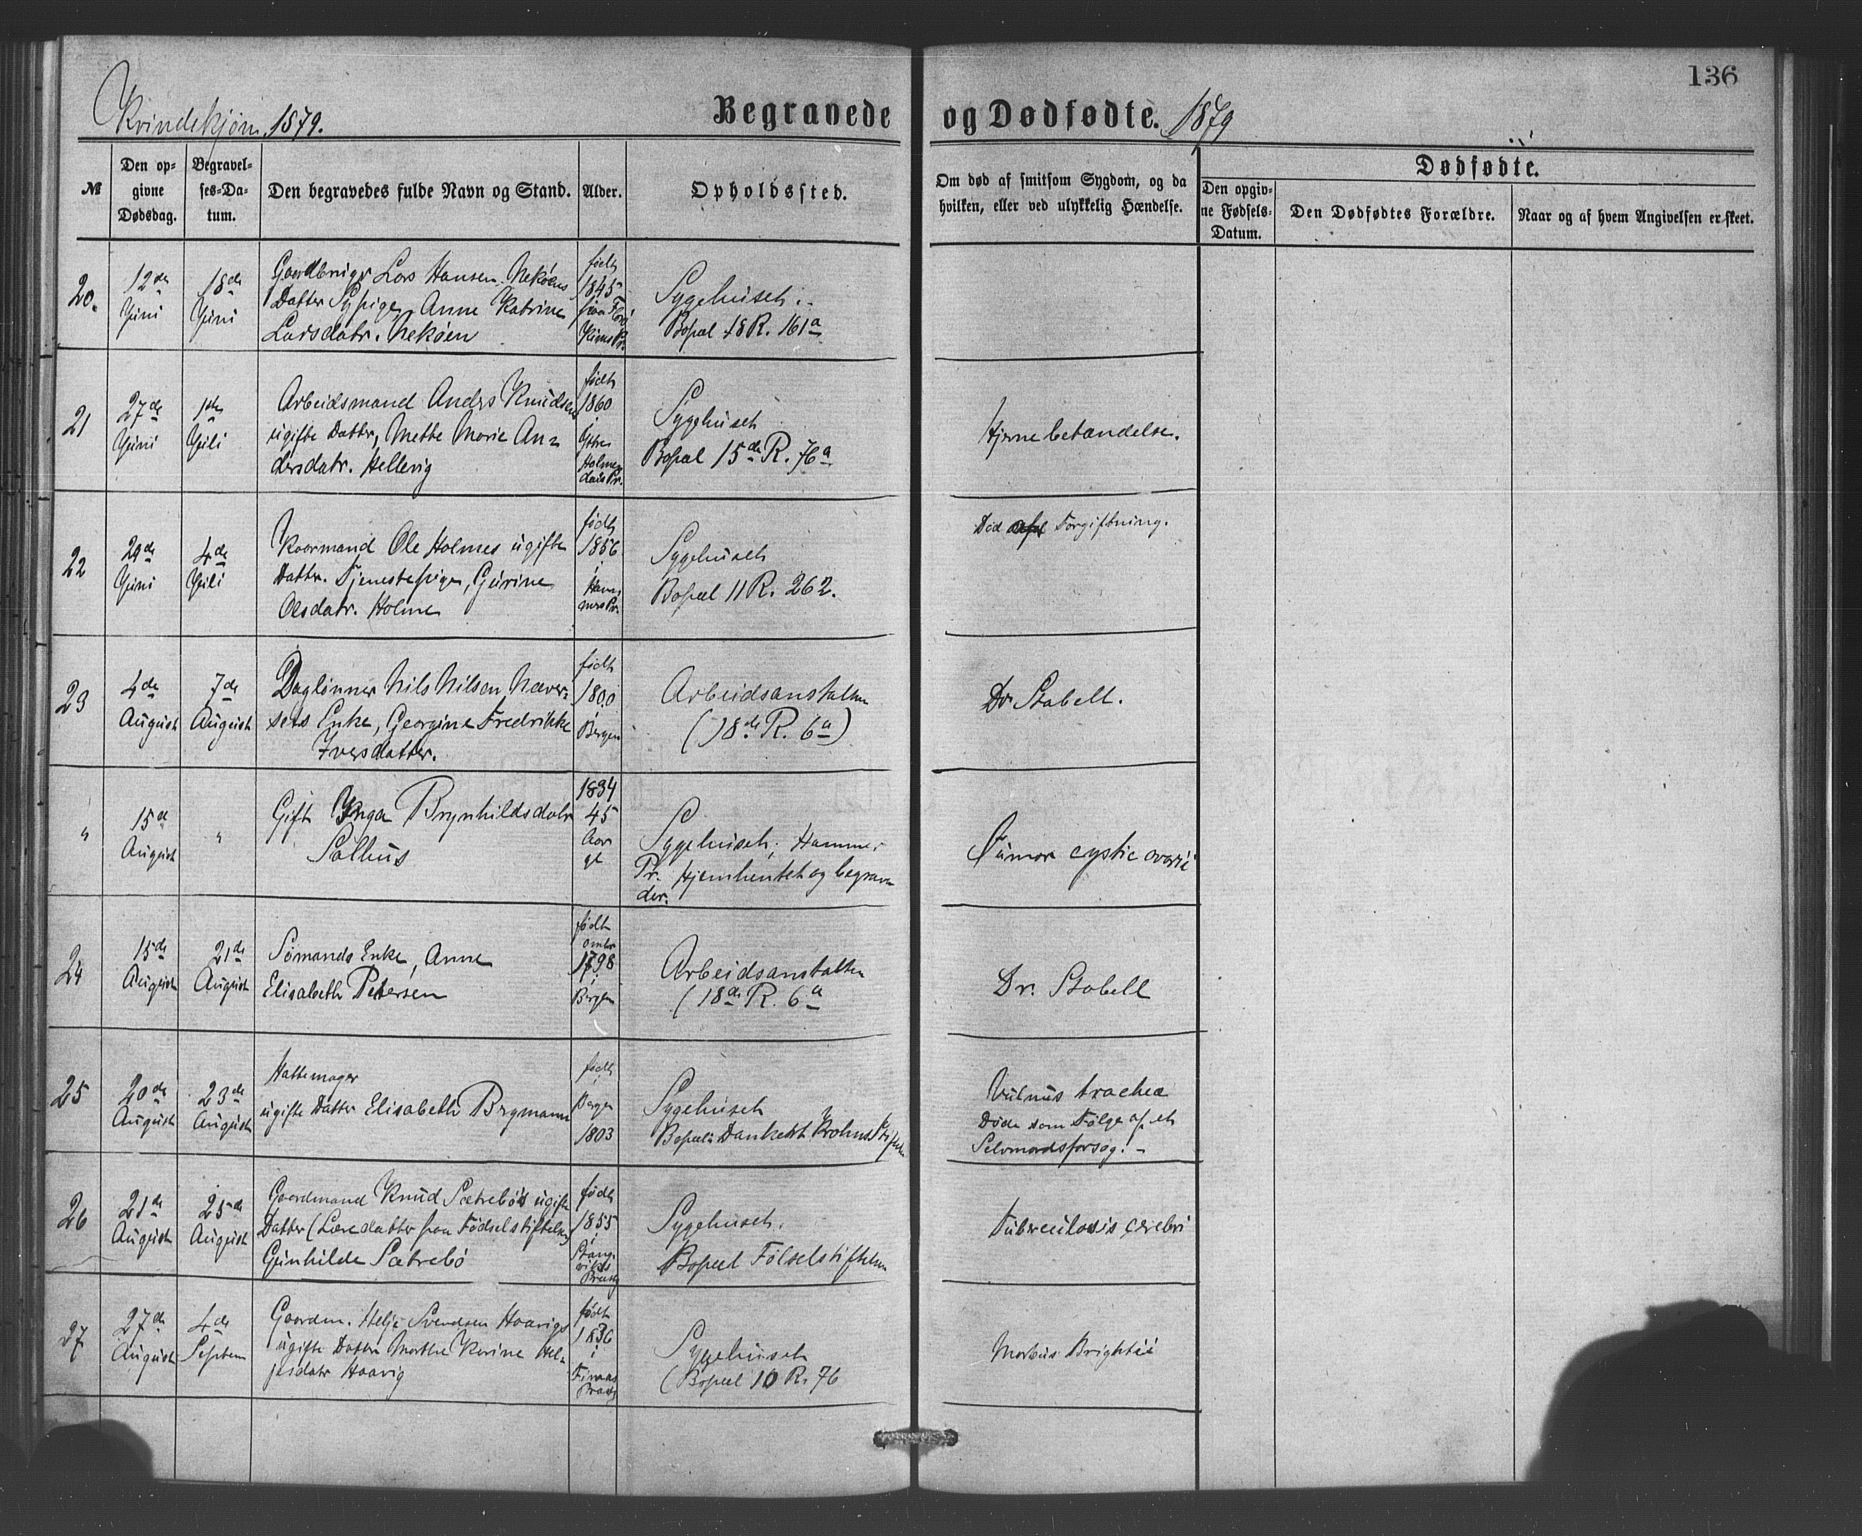 136
Kvindekjøn 1879.
Begravede og Dødfødte. 1879
№
Den op-
givne
Dødsdag.
Begravel-
ses-Da-
tum.
Den begravedes fulde Navn og Stand.
Alder.
Opholdssted.
Om død af smitsom Sygdom, og da
hvilken, eller ved ulykkelig Hændelse.
Dødfødte.
Den opgiv-
ne Fødsels-
Datum.
Den Dødfødtes Forældre.
Naar og af hvem Angivelsen er skeet.
20.
12de
Juni
18de
Juni
Gaardbruger Lars Hansen Nekøens
Datter Sypige, Anne Katrine
Larsdatr. Nekøen
født
1845
Sygehuset.
Bopæl 18 R. 161a
21
27de
Juni
1ste
Juli
Arbeidsmand Anders Knudsen
ugifte Datter, Mette Marie An=
dersdatr. Hellevig
født
1860
i
Ytre
Holme
dals Pr.
Sygehuset
Bopæl 15de R. 76a
Hjernebetændelse.
22
29de
Juni
4de
Juli
Kaarmand Ole Holmes ugifte
Datter. Tjenestepige, Gurine
Olsdatr. Holme
født
1856
i
Ham
mers Pr.
Sygehuset
Bopæl 11 R. 262.
Død Forgiftning.
23
4de
August
7de
August
Daglønner Nils Nilsen Næver-
sets Enke, Georgine Fredrikke
Iversdatter.
født
1800
i
Bergen
Arbeidsanstalten
(18de R. 6a)
Dr. Stabell.
"
15de
August
"
Gift Inga Brynhildsdatr
Salhus
1834
45
Aar
gl
Sygehuset, Hammer
Pr. Hjemhentet og begraven
der.
Tumor cystic ovarii
24
15de
August
21de
August
Sømands Enke, Anne
Elisabeth Petersen
født
omtr
1798
i
Bergen
Arbeidsanstalten
(18de R. 6a
Dr. Stabell
25
20de
August
23de
August
Hattemager
ugifte Datter Elisabeth Bergmann
født
i
Bergen
1803
Sygehuset
Bopæl: Dankert Krohns Stiftelse
Vulnus trachea
Døde som Følge af et
Selvmordsforsøg. –
26
21de
August
25de
August
Gaardmand Knud Sætrebøs ugifte
Datter (Læredatter fra Fødselstiftelsen)
Gunhilde Sætrebø
født
1855
i
Stang
viks
Præstg
Sygehuset.
Bopæl Følselstiftelsen
Tuberculosis cerebri
27
27de
August
4de
Septem
Gaardm. Helje Svendsen Haavigs
ugifte Datter Marthe Karine Hel=
jesdatr Haavig
født
1836
i
Finaas
Præstg
Sygehuset
(Bopæl 10 R. 76
Morbus Brightii